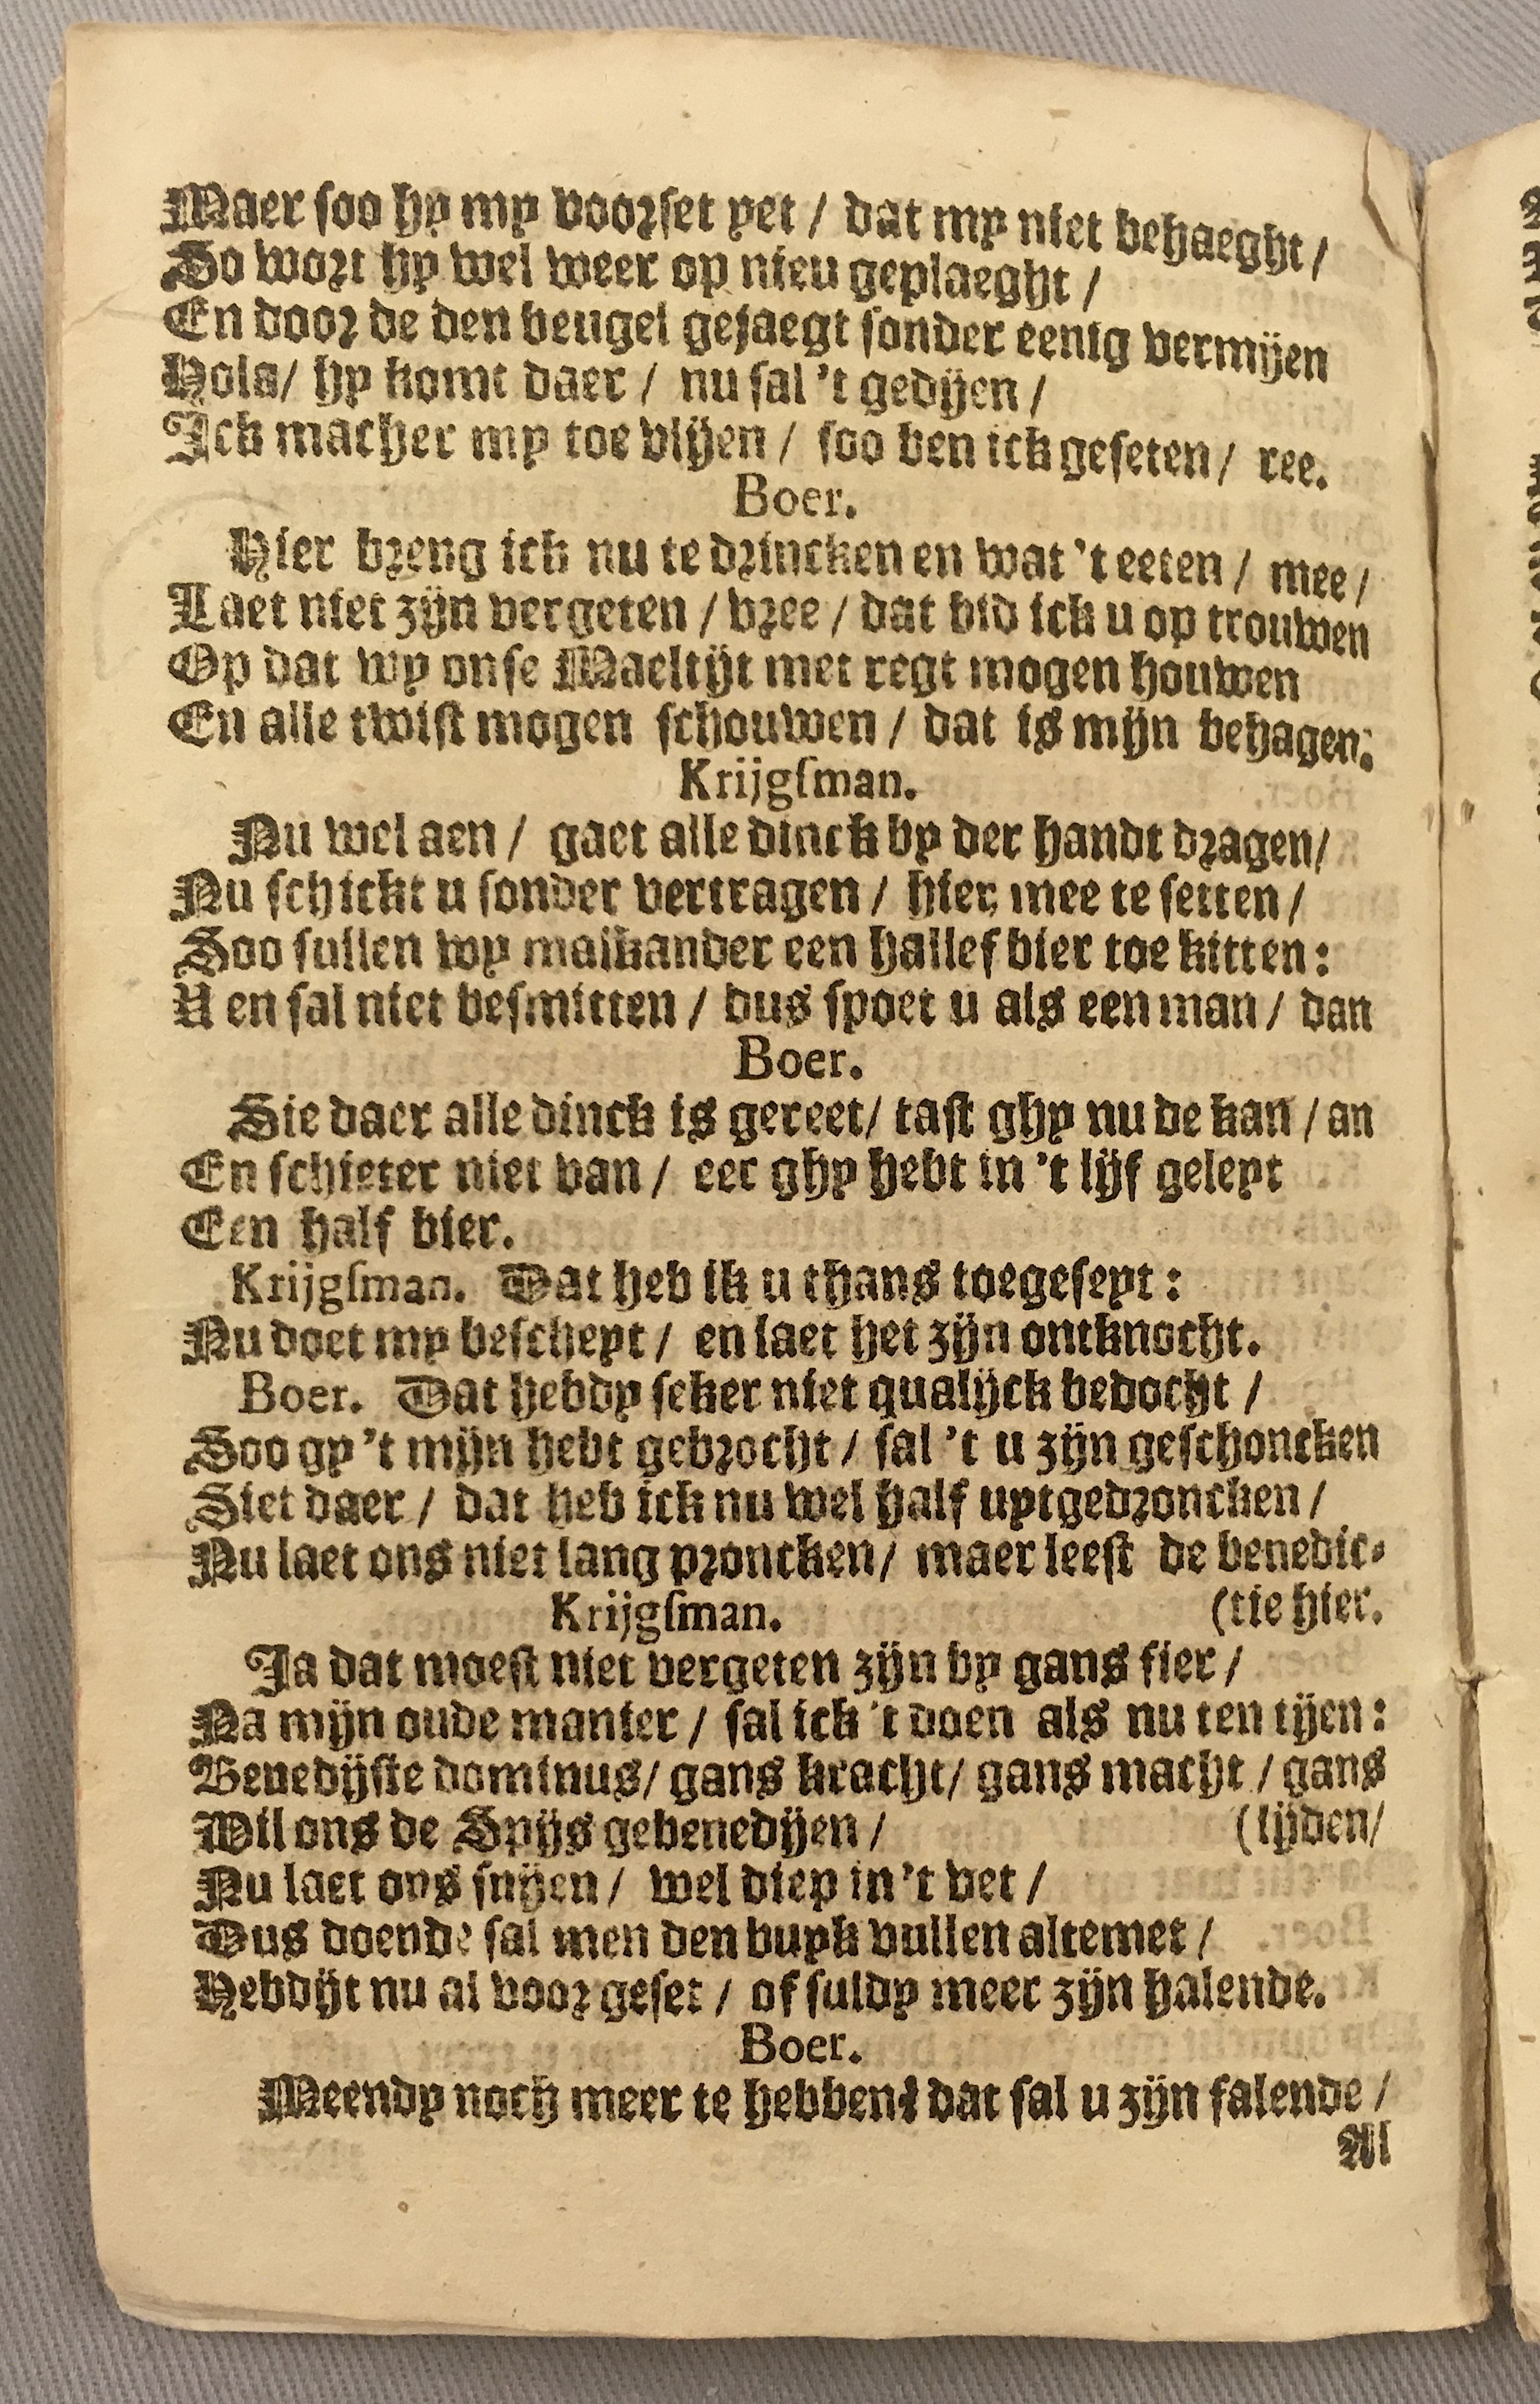 Maer soo hy my voorset yet / dat my niet behaeght /
So wort hy wel weer op nieu geplaeght /
En door de den beugel gejaegt sonder eenig vermijen
Hola / hy komt daer / nu sal 't gedijen /
Ick macher my toe vlijen / soo ben ick geseten / ree.
Boer.
Hier breng ick nu te drincken en wat 't eeten / mee /
Laet niet zijn vergeten / vree / dat bid ick u op trouwen
Op dat wy onse Maeltijt met regt mogen houwen
En alle twist mogen schouwen / dat is mijn behagen.
Krijgsman.
Nu wel aen / gaet alle dinck by der handt dragen /
Nu schickt u sonder vertragen / hier mee te setten /
Soo sullen wy malkander een hallef bier toe kitten:
U en sal niet besmitten / dus spoet u als een man / dan
Boer.
Sie daer alle dinck is gereet / tast ghy nu de kan / an
En schieter niet van / eer ghy hebt in 't lijf geleyt
Een half bier.
Krijgsman. Dat heb ik u thans toegeseyt:
Nu doet my bescheyt / en laet het zijn ontknocht.
Boer. Dat hebdy seker niet qualijck bedocht /
Soo gy 't mijn hebt gebrocht / sal 't u zijn geschoncken
Siet daer / dat heb ick nu wel half uytgedroncken /
Nu laet ons niet lang proncken / maer leest de benedic-
Krijgsman. (tie hier.
Ja dat moest niet vergeten zijn by gans fier /
Na mijn oude manier / sal ick 't doen als nu ten tijen:
Benedijste dominus / gans kracht / gans macht / gans
Wil ons de Spijs gebenedijen / (lijden /
Nu laet ons snijen / wel diep in 't vet /
Dus doende sal men den buyk vullen altemet /
Hebdijt nu al voor geset / of suldy meer zijn halende.
Boer.
Meendy noch meer te hebben? dat sal u zijn falende /
Al